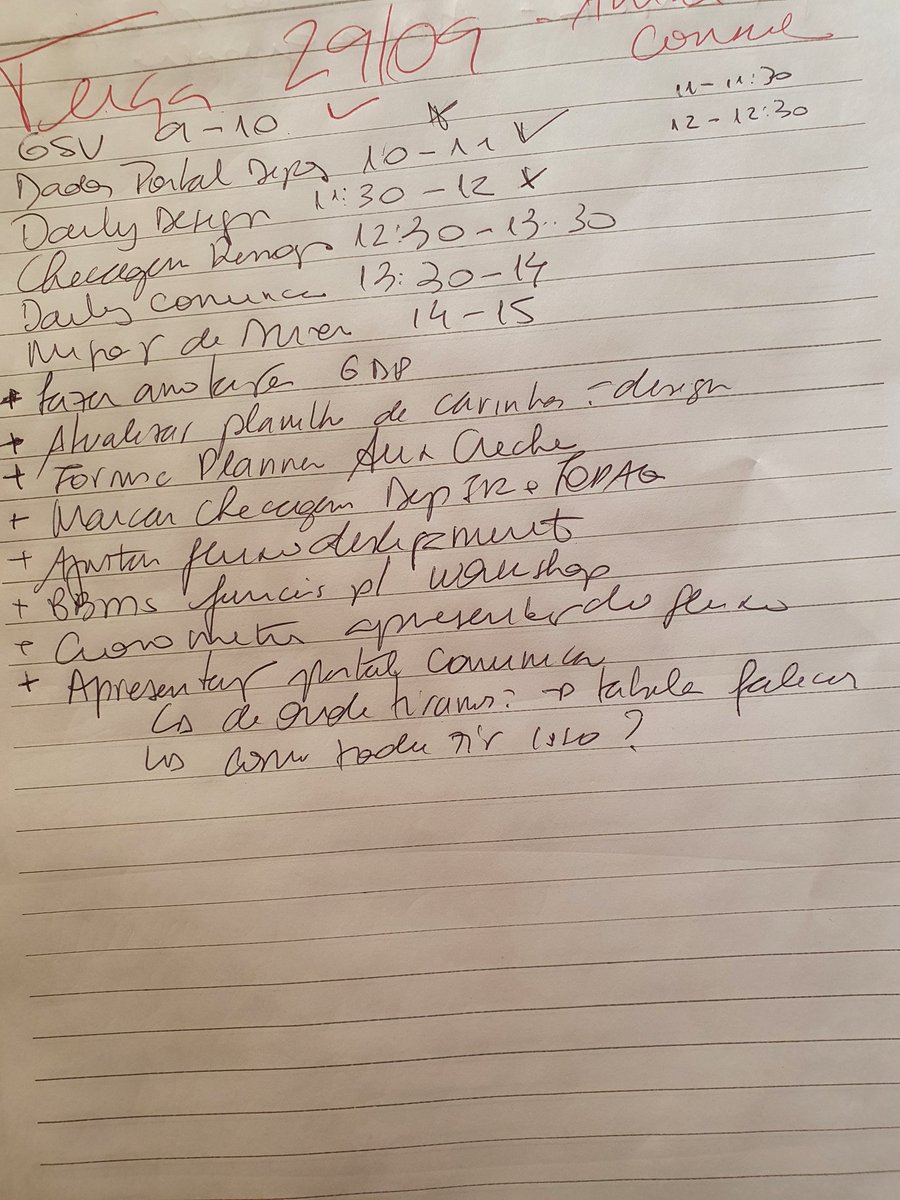 Terça 29/09 -
GSV 9-10
11-11:30
12-12:30
Dados Portal Deps 10-11
Daily Design 11:30-12
Checagem 12:30-13:30
Daily comunica 13:30-14
de 14-15
+ fazer GDP
+ Atualizar planilha de carinhos - design
+ Forms Planner Aux Creche
+ Marcar checagem Dep IR e FOPAG
+ Ajustar fluxo desligamento
+ BBMs funcis p/ workshop
+ Cronometrar apresentando fluxo
+ Apresentar portal comunica
↳ de onde tiramos? → tabela
↳ como traduzir isso?